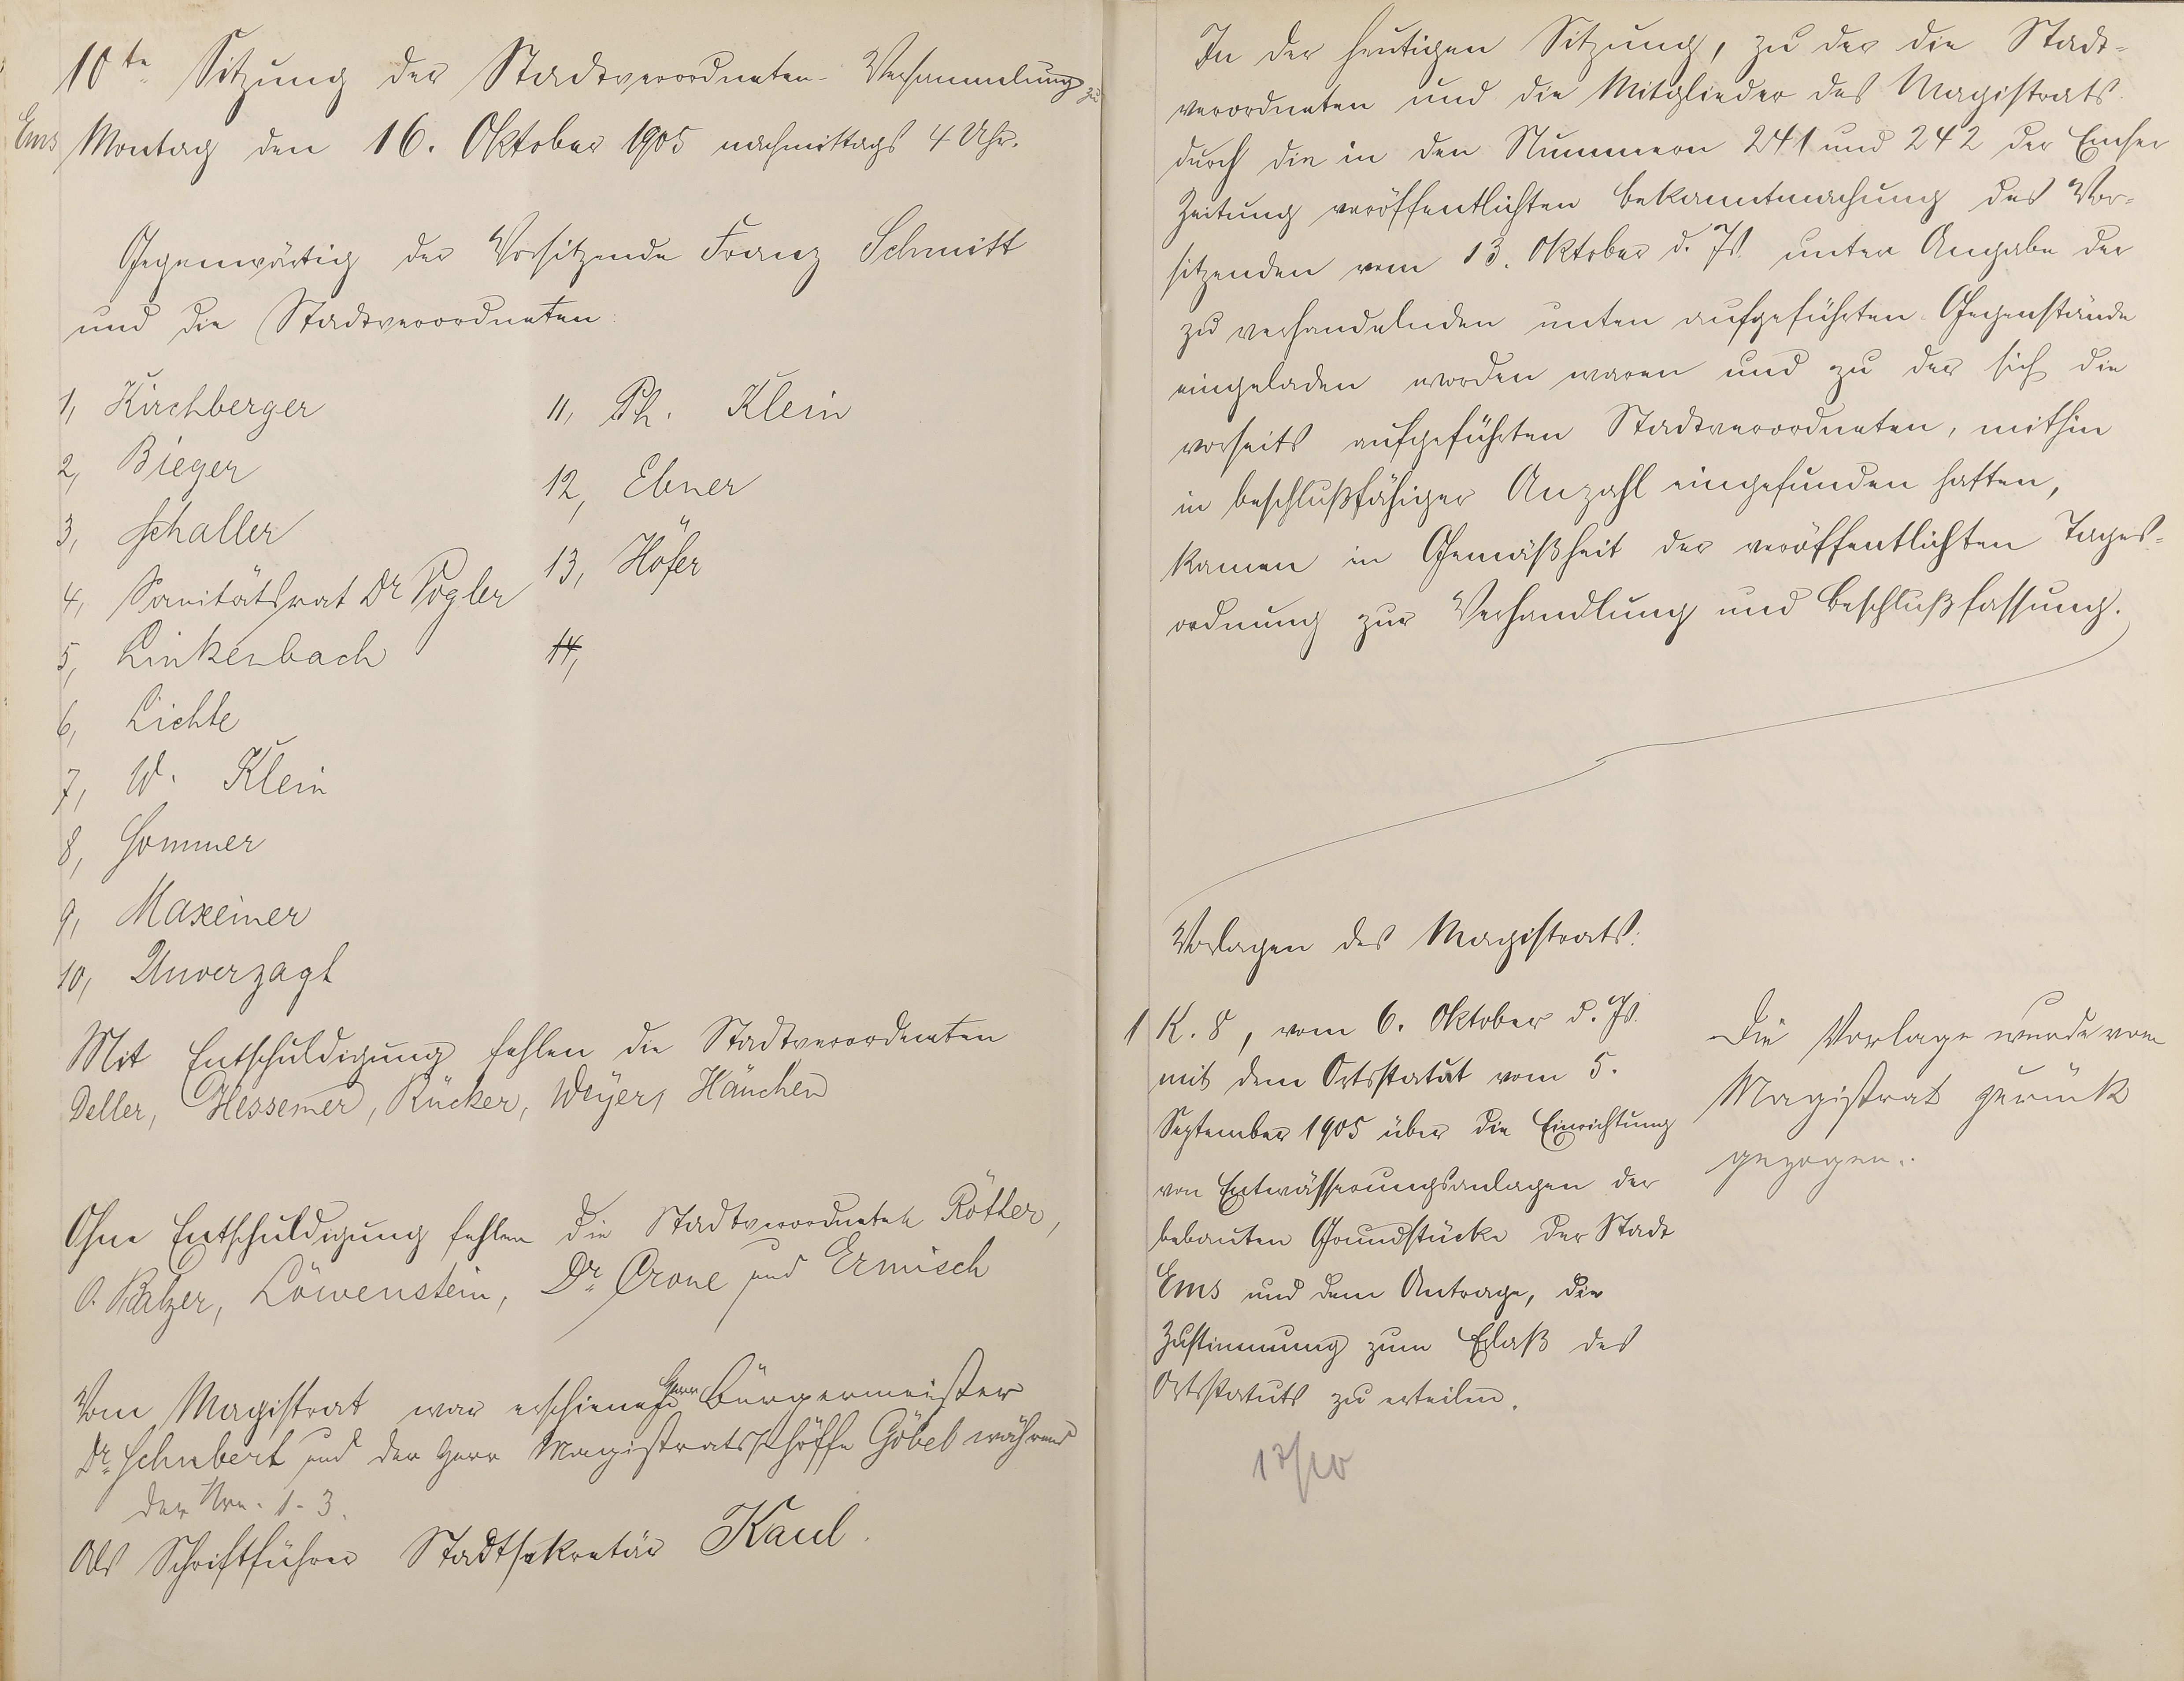 10te Sitzung der Stadtverordneten-Versammlung zu
Ems Montag den 16. Oktober 1905 nachmittags 4 Uhr.
Gegenwärtig der Vorsitzende Franz Schmitt
und die Stadtverordneten:
1, Kirchberger
2, Bieger
3, Schaller
4, Sanitätsrat Dr Vogler
5, Linkenbach
6, Lichte
7, W. Klein
8, Sommer
9, Maxeiner
10, Unverzagt
11, Ph. Klein
12, Ebner
13, Höfer
14,
Mit Entschuldigung fehlen die Stadtverordneten
Deller, Hessemer, Rücker, Weyer, Häuchen
Ohne Entschuldigung fehlen die Stadtverordneten Röther,
O. Balzer, Löwenstein, Dr. Crone und Ermisch
Vom Magistrat war erschienen Herr Bürgermeister
Dr. Schubert und der Herr Magistratsschöffe Göbel während
der Nrn. 1-3.
Als Schriftführer Stadtsekretär Kaul.
In der heutigen Sitzung, zu der die Stadt-
verordneten und die Mitglieder des Magistrats
durch die in den Nummern 241 und 242 der Emser
Zeitung veröffentlichten Bekanntmachung des Vor-
sitzenden vom 13. Oktober d. Js. unter Angabe der
zu verhandelnden unten aufgeführten Gegenstände
eingeladen worden waren und zu der sich die
vorseits aufgeführten Stadtverordneten, mithin
in beschlußfähiger Anzahl eingefunden hatten,
kamen in Gemäßheit der veröffentlichten Tages-
ordnung zur Verhandlung und Beschlußfassung.
Vorlagen des Magistrats:
1 K. 8, vom 6. Oktober d. Js.
mit dem Ortsstatut vom 5.
September 1905 über die Einrichtung
von Entwässerungsanlagen der
bebauten Grundstücke der Stadt
Ems und dem Antrage, die
Zustimmung zum Erlaß des
Ortsstatuts zu erteilen.
Die Vorlage wurde vom
Magistrat zurück
gezogen.